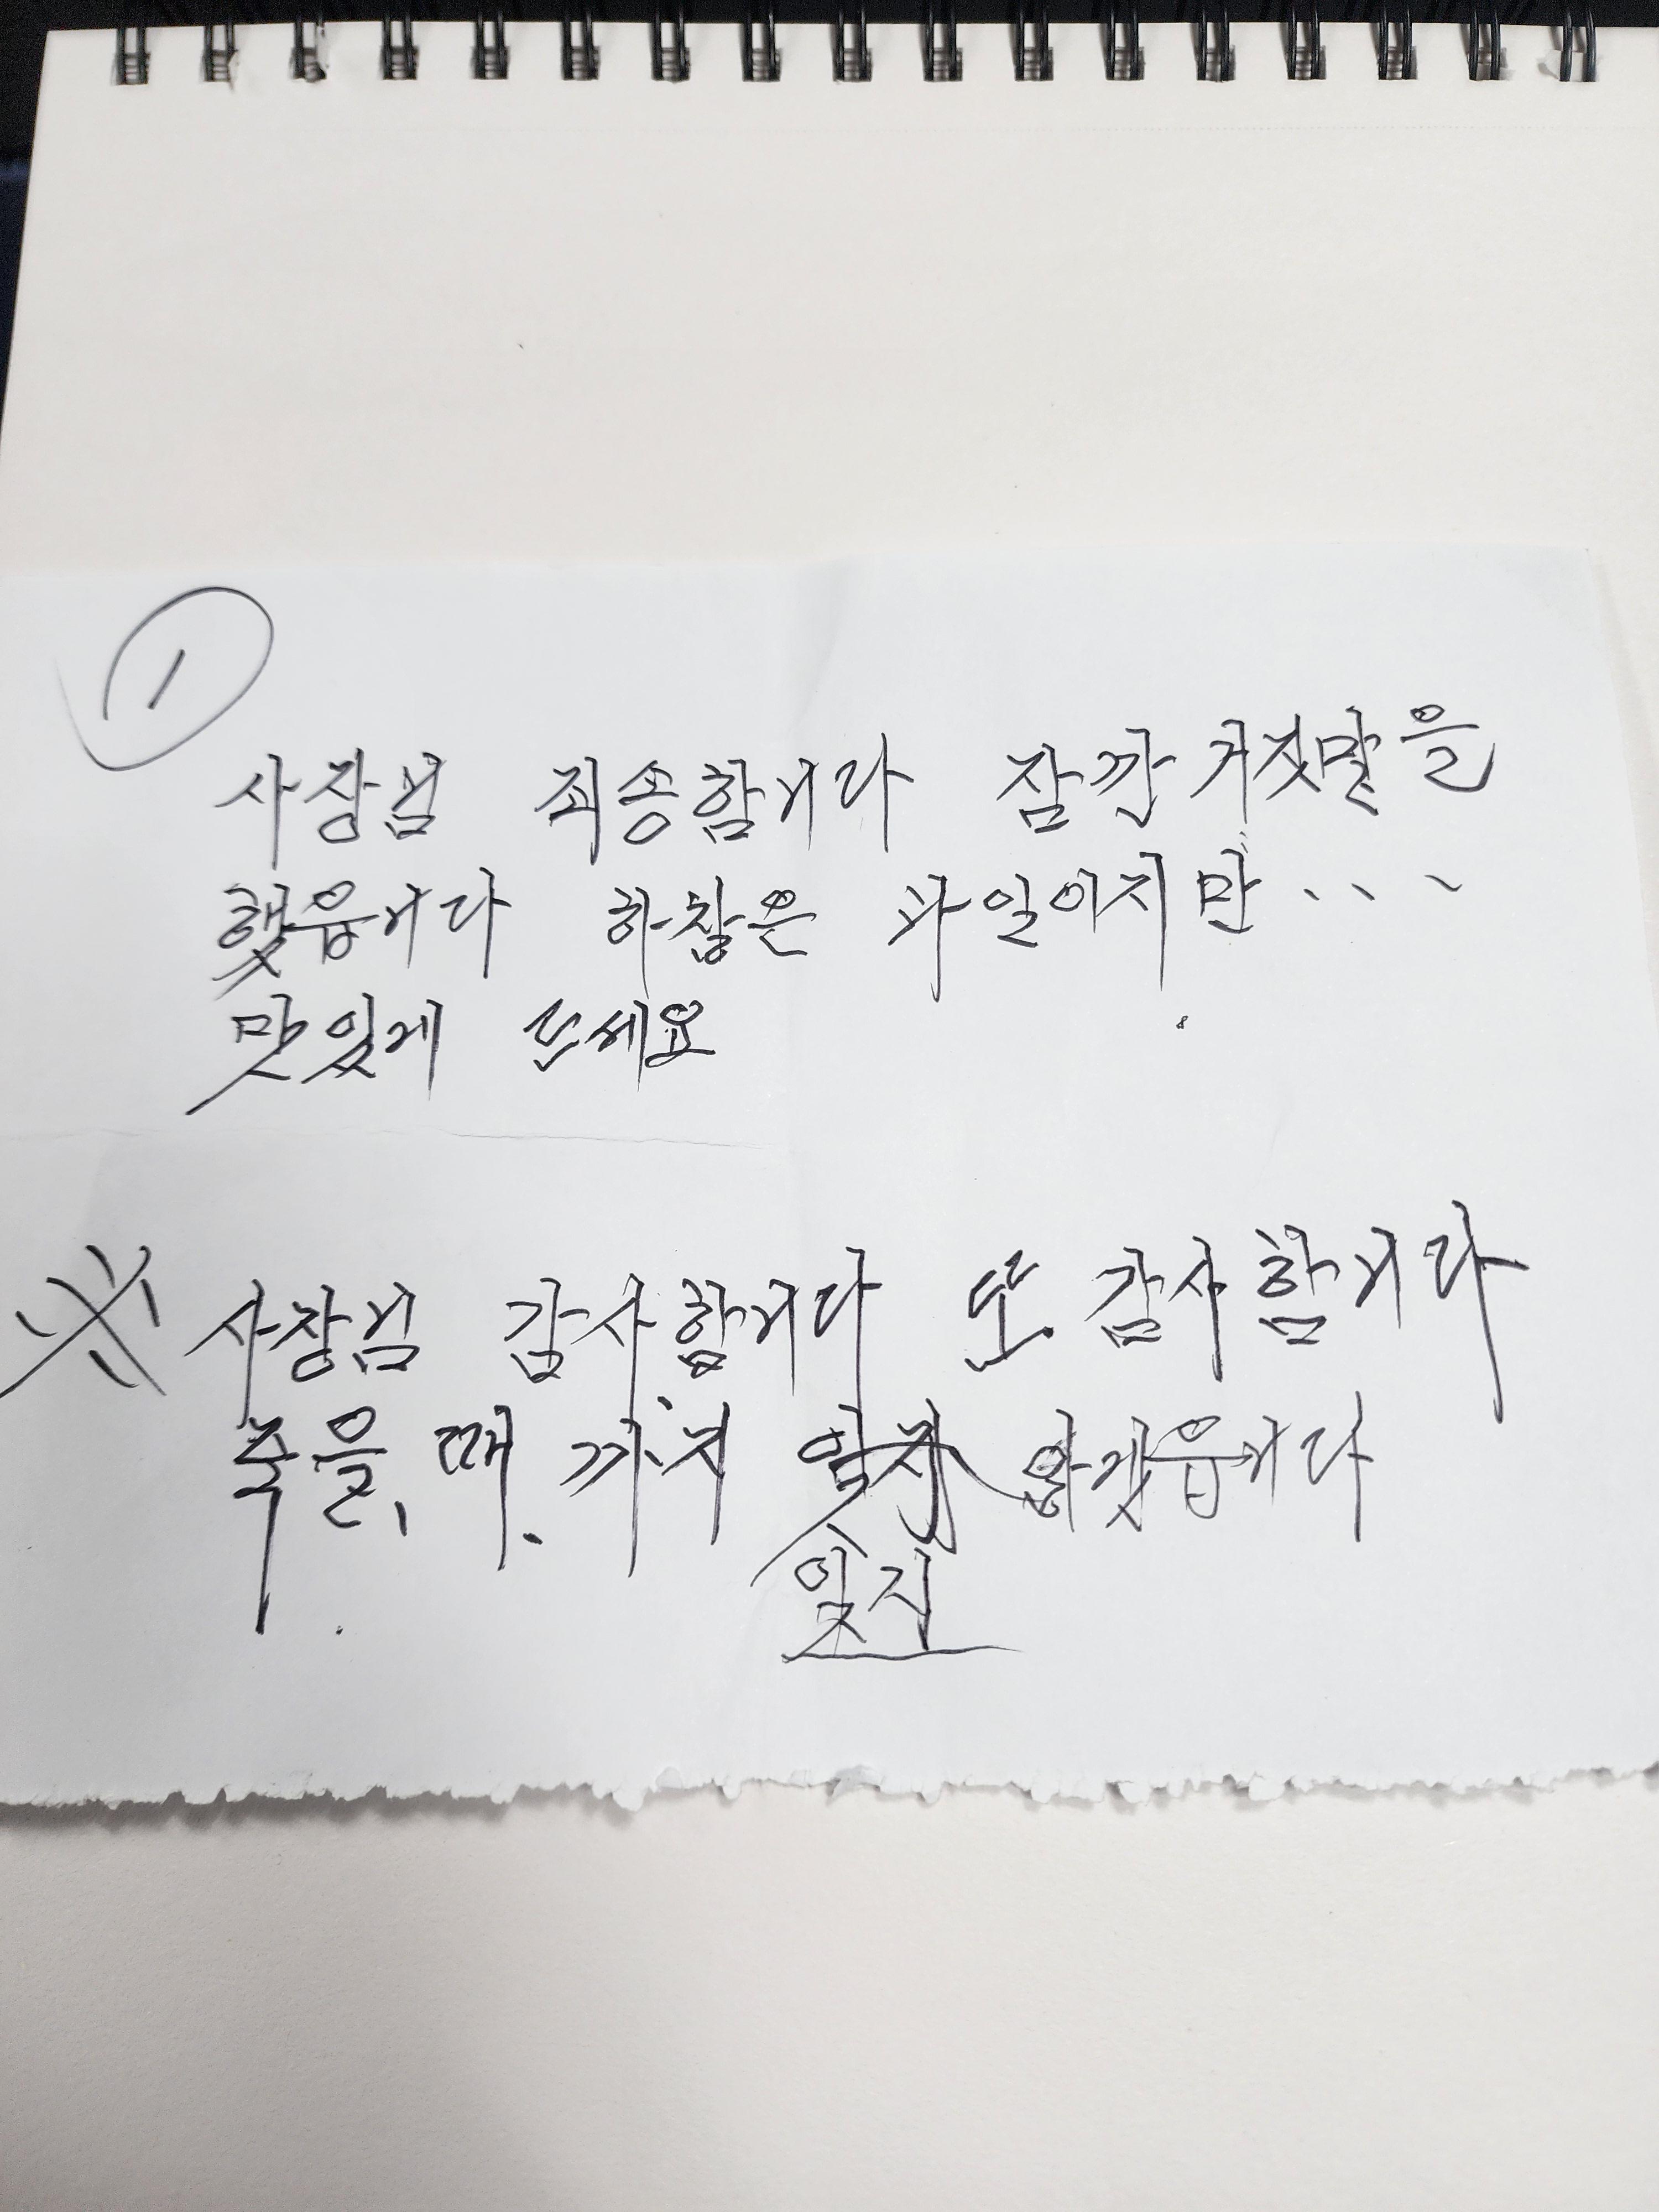 ①
사장님 죄송합니다 잠깐 거짓말을
했읍니다 하찮은 과일이지만...
맛있게 드세요
※ 사장님 감사합니다 또 감사합니다
죽을 때 까지 잊지 않겠읍니다
잊지